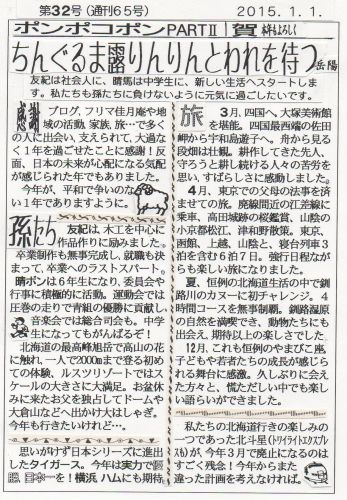 第32号(通刊65号)
2015. 1. 1.
ポンポコポンPARTⅡ
賀
本年もよろしく
ちんぐるま露りんりんとわれを待つ
岳陽
友紀は社会人に、晴馬は中学生に、新しい生活へスタートします。私たちも孫たちに負けないように元気に過ごしたいです。
感謝
ブログ、フリマ佳月庵や地
域の活動、家族、旅…で多く
の人に出会い、支えられて、大過な
く1年を過ごせたことに感謝!反
面、日本の未来が心配になる気配
が感じられた年でもありました。
今年が、平和で争いのな
い1年でありますように。
孫たち
友紀は、木工を中心に
作品作りに励みました。
卒業制作も無事完成し、就職も決
まって、卒業へのラストスパート。
晴ポンは6年生になり、委員会や
行事に積極的に活動。運動会では
圧巻の走りで青組の優勝に貢献し、
音楽会では総合司会も。中学
生になってもがんばるぞ!
北海道の最高峰旭岳で高山の花
に触れ、一人で2000mまで登る初め
ての体験、ルスツリゾートではス
ケールの大きさに大満足。お盆休
みに来たお父を独占してドームや
大倉山などへ出かけ大はしゃぎ。
今年も行きたいけれど…。
思いがけず日本シリーズに進出
したタイガース。今年は実力で優
勝、日本一を!横浜、ハムにも期待。
旅
3月、四国へ。大塚美術館
を堪能。四国最西端の佐田
岬から宇和島遊子へ。舟から見る
段畑は壮観。耕作してきた先人、
守ろうと耕し続ける人々の苦労を
思い、すばらしさに感動しました。
4月、東京での父母の法要を済
ませての旅。廃線間近の江差線に
乗車、高田城跡の桜鑑賞、山陰の
小京都松江、津和野散策。東京、
函館、上越、山陰と、寝台列車3
泊を含む6泊7日。強行日程なが
らも楽しい旅になりました。
夏、恒例の北海道生活の中で釧
路川のカヌーに初チャレンジ。4
時間コースを無事制覇。釧路湿原
の自然を満喫でき、動物たちにも
出会え、期待以上の楽しさでした。
12月、これも恒例のやまびこ座。
子どもや若者たちの成長が感じら
れる舞台に感激。久しぶりに会え
た方々と、慌ただしい中でも楽し
い語らいができました。
私たちの北海道行きの楽しみの
一つであった北斗星(トワイライトエクスプレス
も)が、今年3月で廃止になるのは
すごく残念!今年からまた
違った計画を考えなければ。